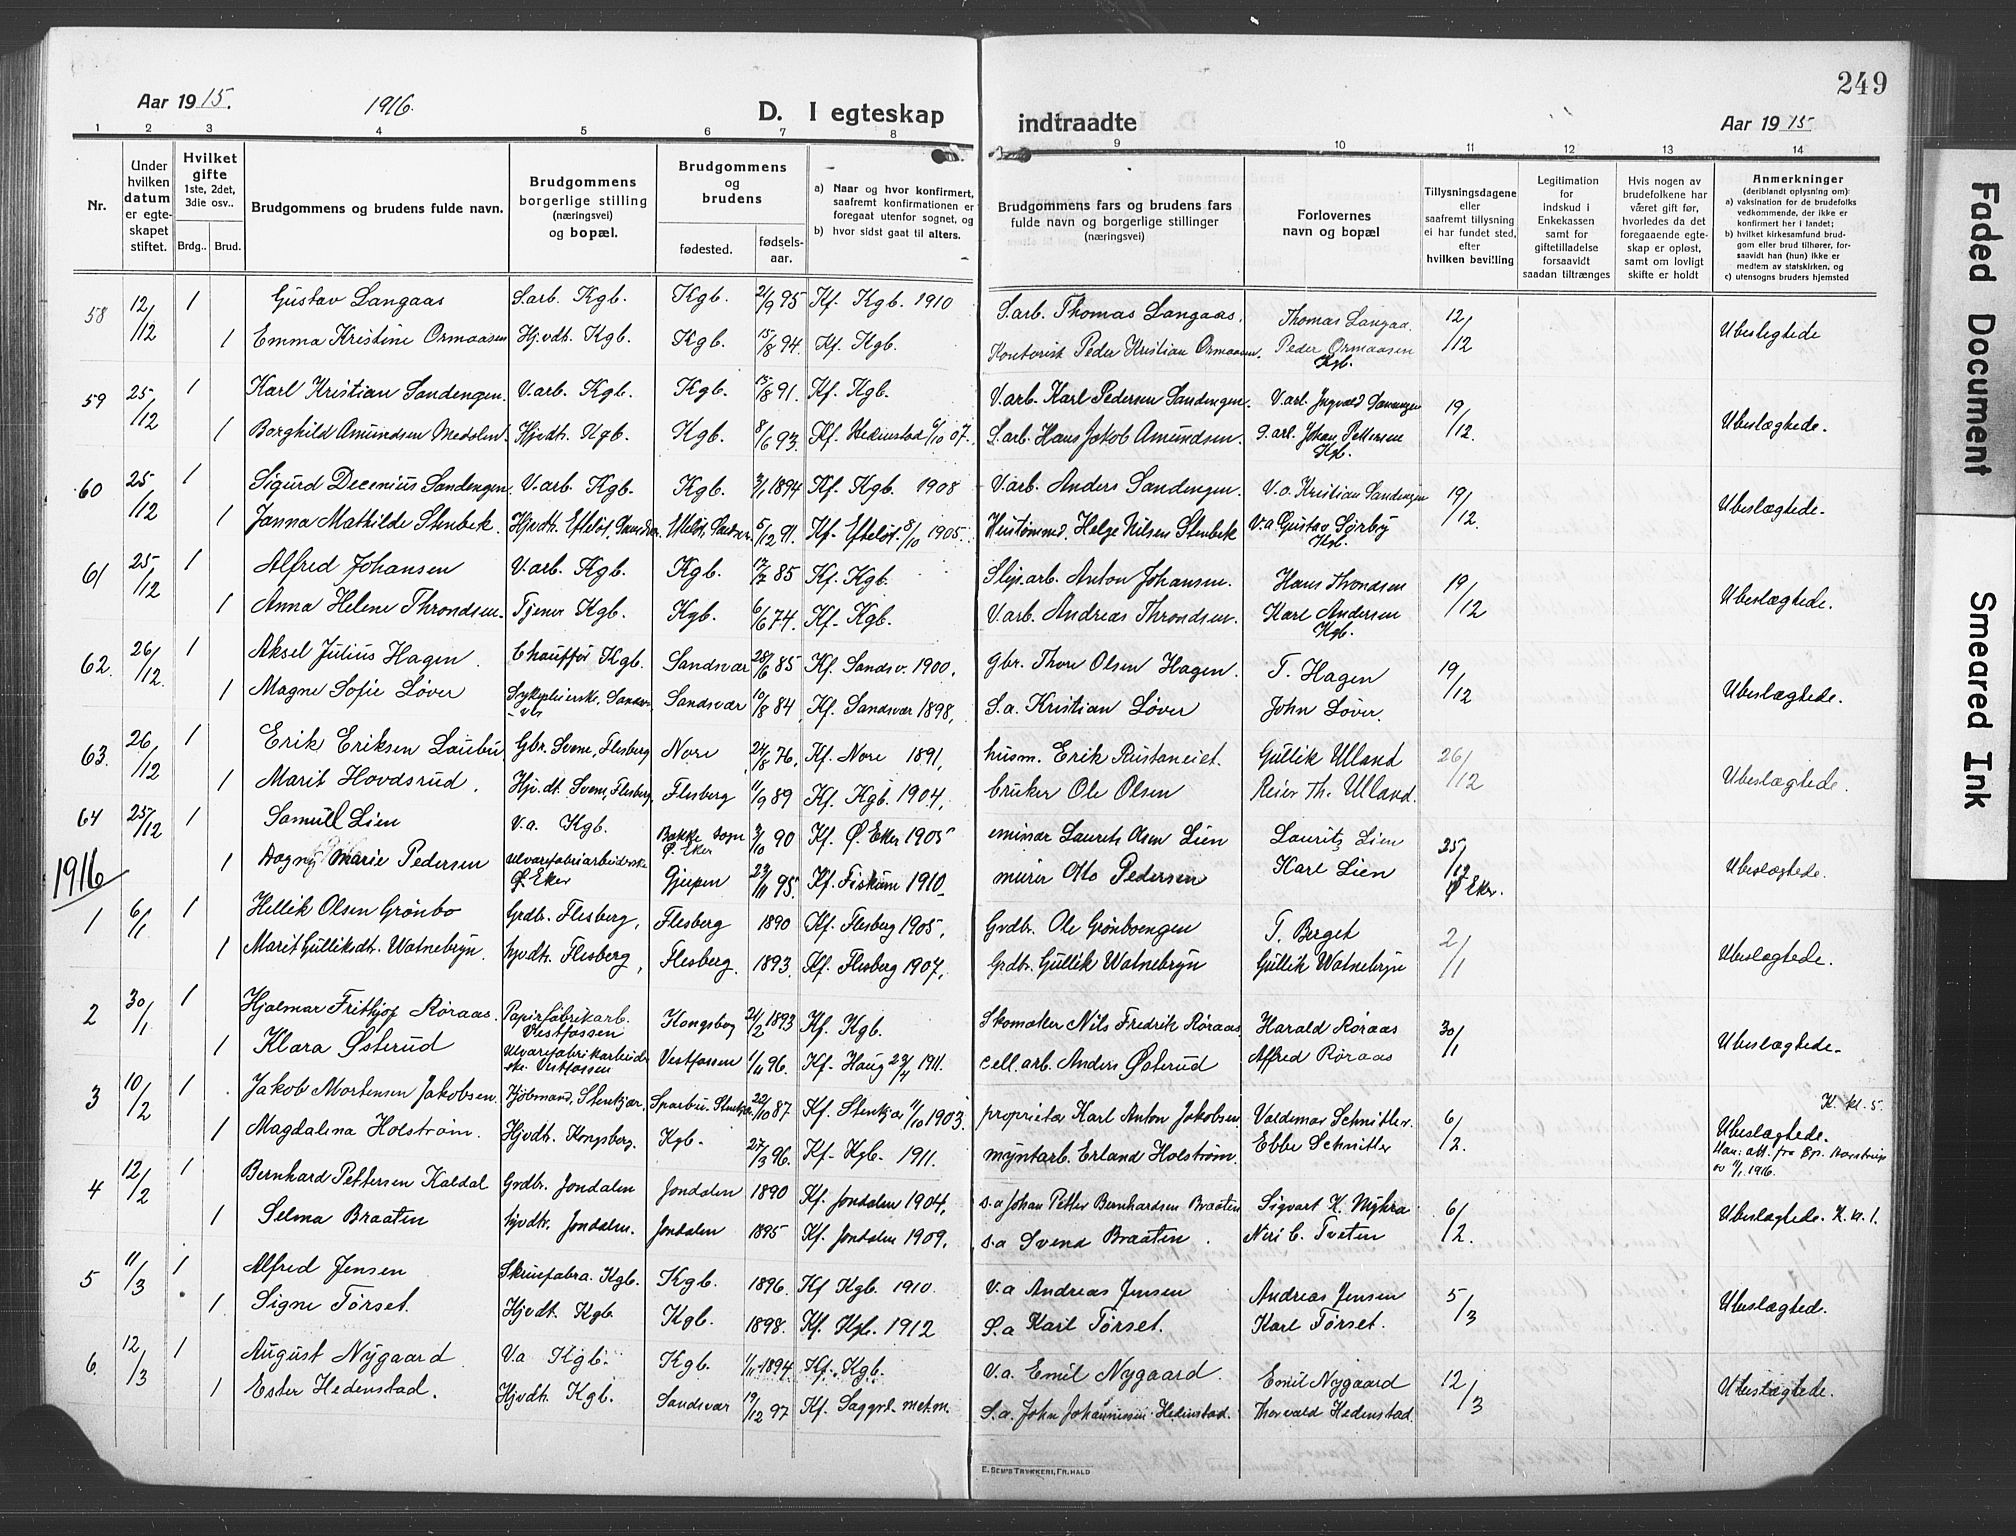 249
Aar 1915. 1916. D. I egteskap indtraadte Aar 1915.
1 2 3 4 5 6 7 8 9 10 11 12 13 14
Nr.
Under hvilken datum er egteskapet stiftet.
Hvilket gifte 1ste, 2det, 3die osv..
Brdg.. Brud.
Brudgommens og brudens fulde navn.
Brudgommens borgerlige stilling (næringsvei) og bopæl.
Brudgommens og brudens
fødested. fødselsaar.
a) Naar og hvor konfirmert, saafremt konfirmationen er foregaat utenfor sognet, og
b) hvor sidst gaat til alters.
Brudgommens fars og brudens fars fulde navn og borgerlige stillinger (næringsvei)
Forlovernes navn og bopæl
Tillysningsdagene eller saafremt tillysning ei har fundet sted, efter hvilken bevilling
Legitimation for indskud i Enkekassen samt for giftetilladelse forsaavidt saadan tiltrænges
Hvis nogen av brudefolkene har været gift før, hvorledes da det foregaaende egteskap er opløst, samt om lovligt skifte er holdt
Anmerkninger (deriblandt oplysning om):
a) vaksination for de brudefolks vedkommende, der ikke er konfirmert her i landet;
b) hvilket kirkesamfund brudgom eller brud tilhører, forsaavidt han (hun) ikke er medlem av statskirken, og
c) utensogns bruders hjemsted
58 12/12 1 Gustav Langaas S.arb. Kgb. Kgb. 21/9 95 Kf. Kgb. 1910 S.arb. Thomas Langaas. Thomas Langaa. 12/12 Ubeslegtede
1 Emma Kristine Ormaasen Hj.vdt. Kgb. Kgb. 15/8 94. Kf. Kgb. Kontorist Peder Kristian Ormaasen. Peder Ormaasen Kgb.
59 25/12 1 Karl Kristian Sandengen. V.arb. Kgb. Kgb. 15/8 91. Kf. Kgb. V.arb. Karl Pedersen Sandengen. V.arb. Ingvald Sandengen 19/12. Ubeslægtede.
1 Borghild Amundsen Medalen. Hjvdt. Kgb. Kgb. 8/6 93. Kf. Hedenstad 6/10 07. S.arb. Hans Jakob Amundsen. S.arb. Johan Pettersen Kgb.
60 25/12 1 Sigurd Decenius Sandengen. V.arb. Kgb. Kgb. 3/1 1894 Kf. Kgb. 1908 V.arb. Anders Sandengen. V.a. Kristian Sandengen 19/12. Ubeslægtede.
1 Janna Mathilde Stenbek. Hjvdt. Efteløt, Sandsv. Efteløt, Sandsv. 5/12 91. Kf. Efteløt. 8/10 1905. Hustømmd. Helge Nilsen Stenbek V.a. Gustav Sørby Kgb.
61 25/12 1 Alfred Johansen V.arb. Kgb. Kgb. 17/7 85 Kf. Kgb. Slip.arb. Anton Johansen. Hans Throndsen 19/12 Ubeslægtede.
1 Anna Helene Throndsen. Tjener Kgb. Kgb. 6/6 74. Kf. Kgb. V.arb. Andreas Throndsen. Karl Andersen Kgb.
62. 26/12. 1 Aksel Julius Hagen. Chauffør Kgb. Sandsvær 28/6 85 Kf. Sandsv. 1900. Gbr. Thore Olsen Hagen. T. Hagen 19/12 Ubeslægtede.
1 Magne Sofie Løver Sykepleiersk. Sandsv. Sandsvær 10/8 84. Kf. Sandsvær 1898. S.a. Kristian Løver John Løver.
63. 26/12 1 Erik Eriksen Laubu Gbr. Svene, Flesberg Nore 24/8 76. Kf. Nore 1891. husm. Erik Rustaneiet. Gullik Ulland 26/12 Ubeslægtede.
1 Marit Hovdsrud. Hjv.dt. Svene, Flesberg. Flesberg 11/9 89 Kf. Kgb. 1904. bruker Ole Olsen Reier Th. Ulland.
64 25/12 1 Samuel Lien V.a. Kgb. Bakke sogn Ø. Eker 3/10 90 Kf. Ø. Eker 1905 Laurits Olsen Lien Laurits Lien 25/12 Ø. Eker. Ubeslægtede.
1 Dagny Marie Pedersen Ulvarefabrikarbeiderske Ø. Eker Gjerpen 23/11 95. Kf. Fiskum 1910 murer Otto Pedersen Karl Lien
1916
1 6/1 1 Hellik Olsen Grønbo Grdbr. Flesberg, Flesberg 1890 Kf. Flesberg 1905. Grdbr. Ole Grønboengen T. Berget 2/1 Ubeslægtede.
1 Marit Gulliksdt. Watnebryn. hjvdt. Flesberg, Flesberg. 1893. Kf. Flesberg 1907. Grdbr. Gullik Watnebryn Gullik Watnebryn
2 30/1. 1 Hjalmar Frithjof Røraas. Papirfabrikarb. Vestfossen Kongsberg 24/2 1893 Kf. Kgb. Skomaker Nils Fredrik Røraas. Harald Røraas 30/1 Ubeslægtede.
1 Klara Østerud Ulvarefabrikarbeiderske. Vestfossen Vestfossen 1/11 96. Kf. Haug 23/4 1911. Cell.arb. Anders Østerud Alfred Røraas
3 10/2 1 Jakob Mortensen Jakobsen. Kjøbmand, Stenkjær. Sparbu. Stenkjær. 22/10 87 Kf. Stenkjær 11/10 1903. proprietær Karl Anton Jakobsen Valdemar Schnitler. 6/2. K. kl. 5. Ubeslægtede.
1 Magdalena Holstrøm. Hjvdt. Kongsberg. Kgb. 27/3 96. Kf. Kgb. 1911. myntarb. Erland Holstrøm. Ebbe Schnitler av 7/1 1916.
4 12/2 1 Bernhard Pettersen Kaldal Grdbr. Jondalen Jondalen 1890 Kf. Jondalen 1904. S.a Johan Petter Bernhardsen Braaten Sigvart K. Myhra 6/2. Ubeslægtede. K. kl. 1.
1 Selma Braaten hjvdt. Jondalen. Jondalen 1895 Kf. Jondalen 1909. S.a Svend Braaten. Neri C. Tveten
5 11/3 1 Alfred Jensen Skruefabra. Kgb. Kgb. 1896. Kf Kgb. 1910. V.a Andreas Jensen Andreas Jensen 5/3 Ubeslægtede.
1 Signe Tørset. Hjvdt. Kgb Kgb. 1898. Kf. Kgb. 1912 S.a Karl Tørset. Karl Tørset.
6. 12/3 1 August Nygaard V.a Kgb. Kgb. 1/11 1894. Kf. Kgb. V.a. Emil Nygaard. Emil Nygaard 12/3 Ubeslægtede.
1 Ester Hedenstad. Hjvdt. Kgb. Sandsvær 19/12 97 Kf. Saggrd. met.m. S.a. John Johannesen Hedenstad. Thorvald Hedenstad.
E. SEM'S TRYKKERI, FR.HALD
Faded Document
Smeared Ink